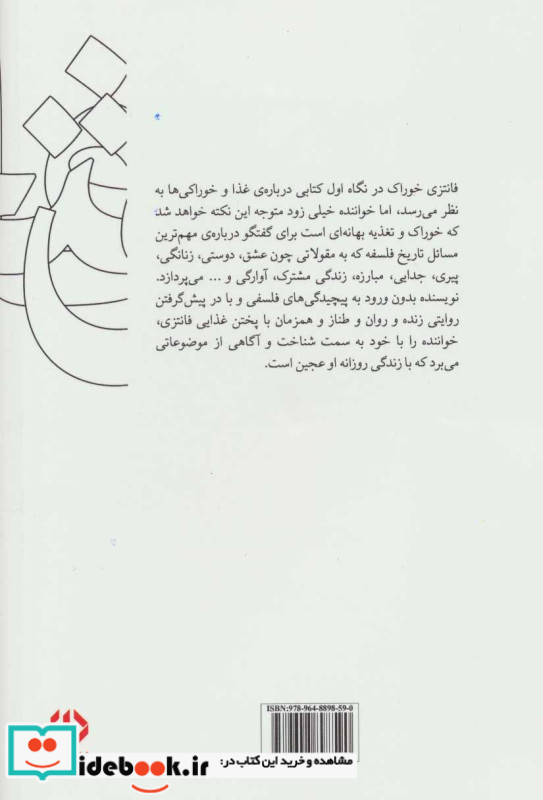 فانتزی خوراک در نگاه اول کتابی درباره‌ی غذا و خوراکی‌ها به
نظر می‌رسد، اما خواننده خیلی زود متوجه این نکته خواهد شد
که خوراک و تغذیه بهانه‌ای است برای گفتگو درباره‌ی مهم‌ترین
مسائل تاریخ فلسفه که به مقولاتی چون عشق، دوستی، زنانگی،
پیری، جدایی، مبارزه، زندگی مشترک، آوارگی و ... می‌پردازد.
نویسنده بدون ورود به پیچیدگی‌های فلسفی و با در پیش‌گرفتن
روایتی زنده و روان و طناز و همزمان با پختن غذایی فانتزی،
خواننده را با خود به سمت شناخت و آگاهی از موضوعاتی
می‌برد که با زندگی روزانه او عجین است.
ISBN:978-964-8898-59-0
مشاهده و خرید این کتاب در:
idebook.ir